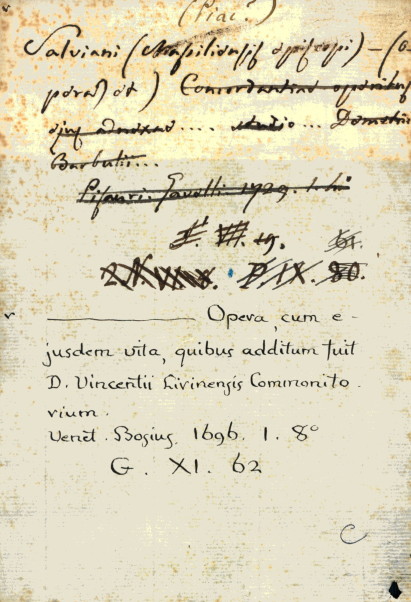 (Piac.)
Salviani (Massiliensis episcopi) – (O
pera) et) Concordantiae operibus
ejus adnexae .... studio ... Demetrii
Barbulii...
Pisauri. Gavelli. 1729. 1. 4º
VII. 19. 61.
IX. 80.
Opera, cum e-
jusdem vita, quibus additum fuit
D. Vincentii Livinensis Commonito-
rium.
Venet. Bosius, 1696. 1. 8º
G. XI. 62
C